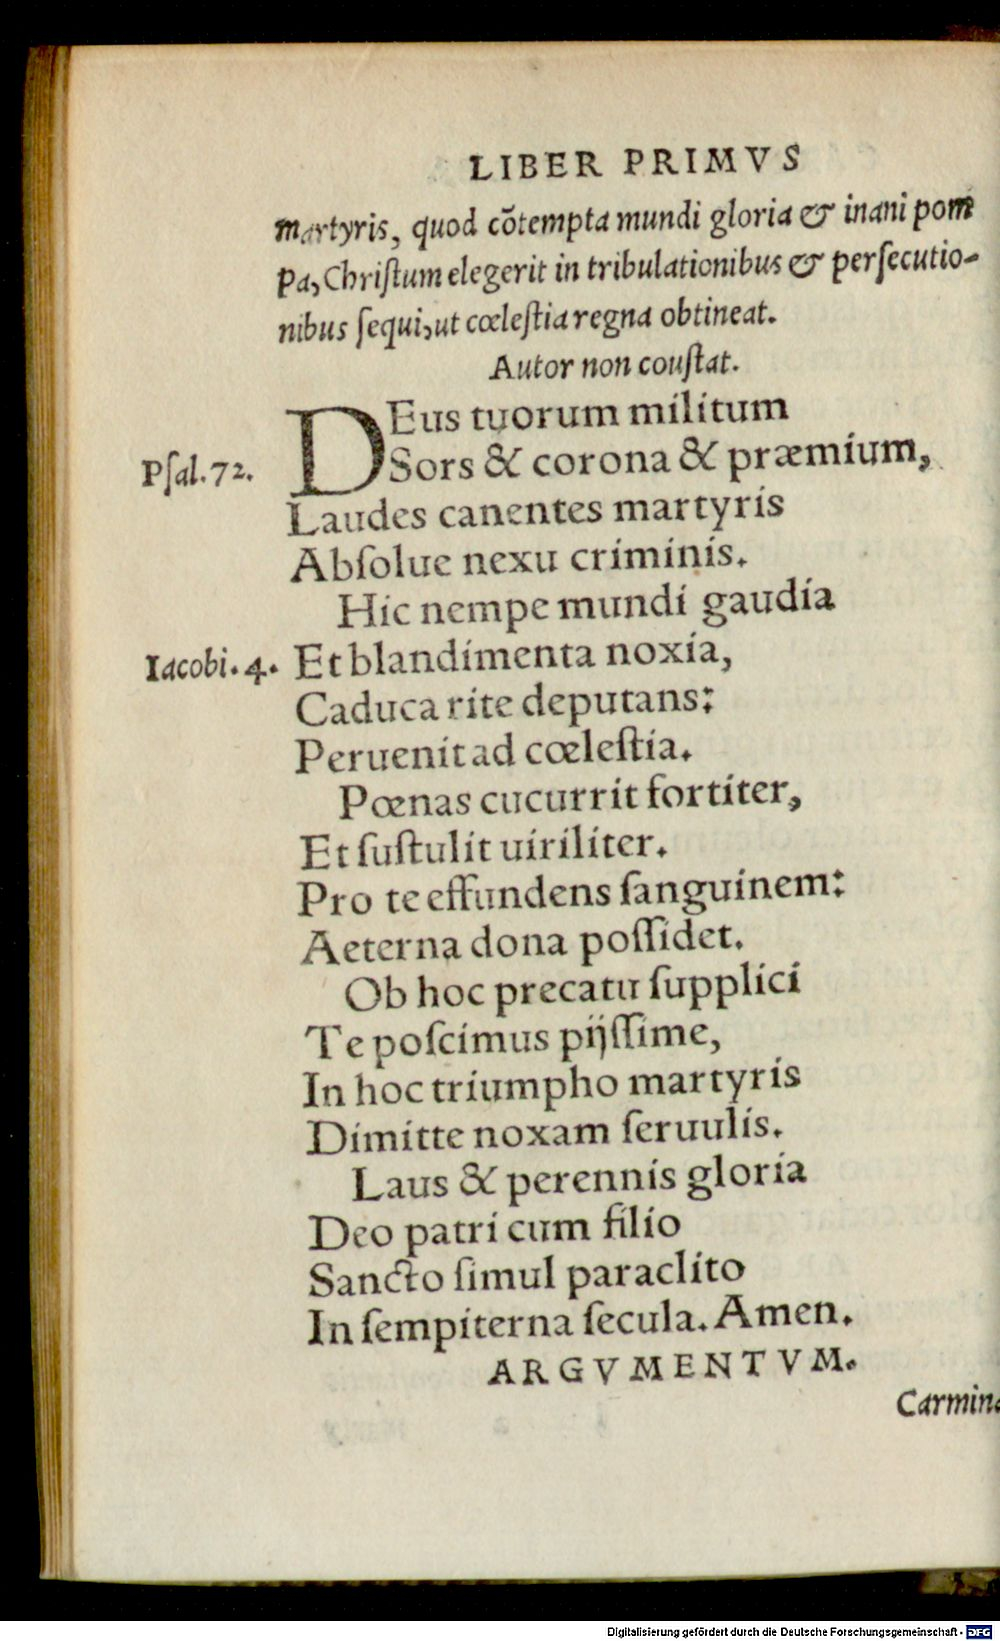 LIBER PRIMVS
martyris, quod cõtempta mundi gloria & inani pom
pa, Chriſtum elegerit in tribulationibus & perſecutio-
nibus ſequi, ut cœleſtia regna obtineat.
Autor non couſtat.
DEus tuorum militum
Psal. 72. Sors & corona & præmium,
Laudes canentes martyris
Abſolue nexu criminis.
Hic nempe mundi gaudia
Iacobi. 4. Et blandimenta noxia,
Caduca rite deputans:
Peruenit ad cœleſtia.
Pœnas cucurrit fortiter,
Et ſuſtulit uiriliter.
Pro te effundens ſanguinem:
Aeterna dona poſſidet.
Ob hoc precatu ſupplici
Te poſcimus pijſſime,
In hoc triumpho martyris
Dimitte noxam ſeruulis.
Laus & perennis gloria
Deo patri cum filio
Sancto ſimul paraclito
In ſempiterna ſecula. Amen.
ARGVMENTVM.
Carmina
Digitalisierung gefördert durch die Deutsche Forschungsgemeinschaft - DFG